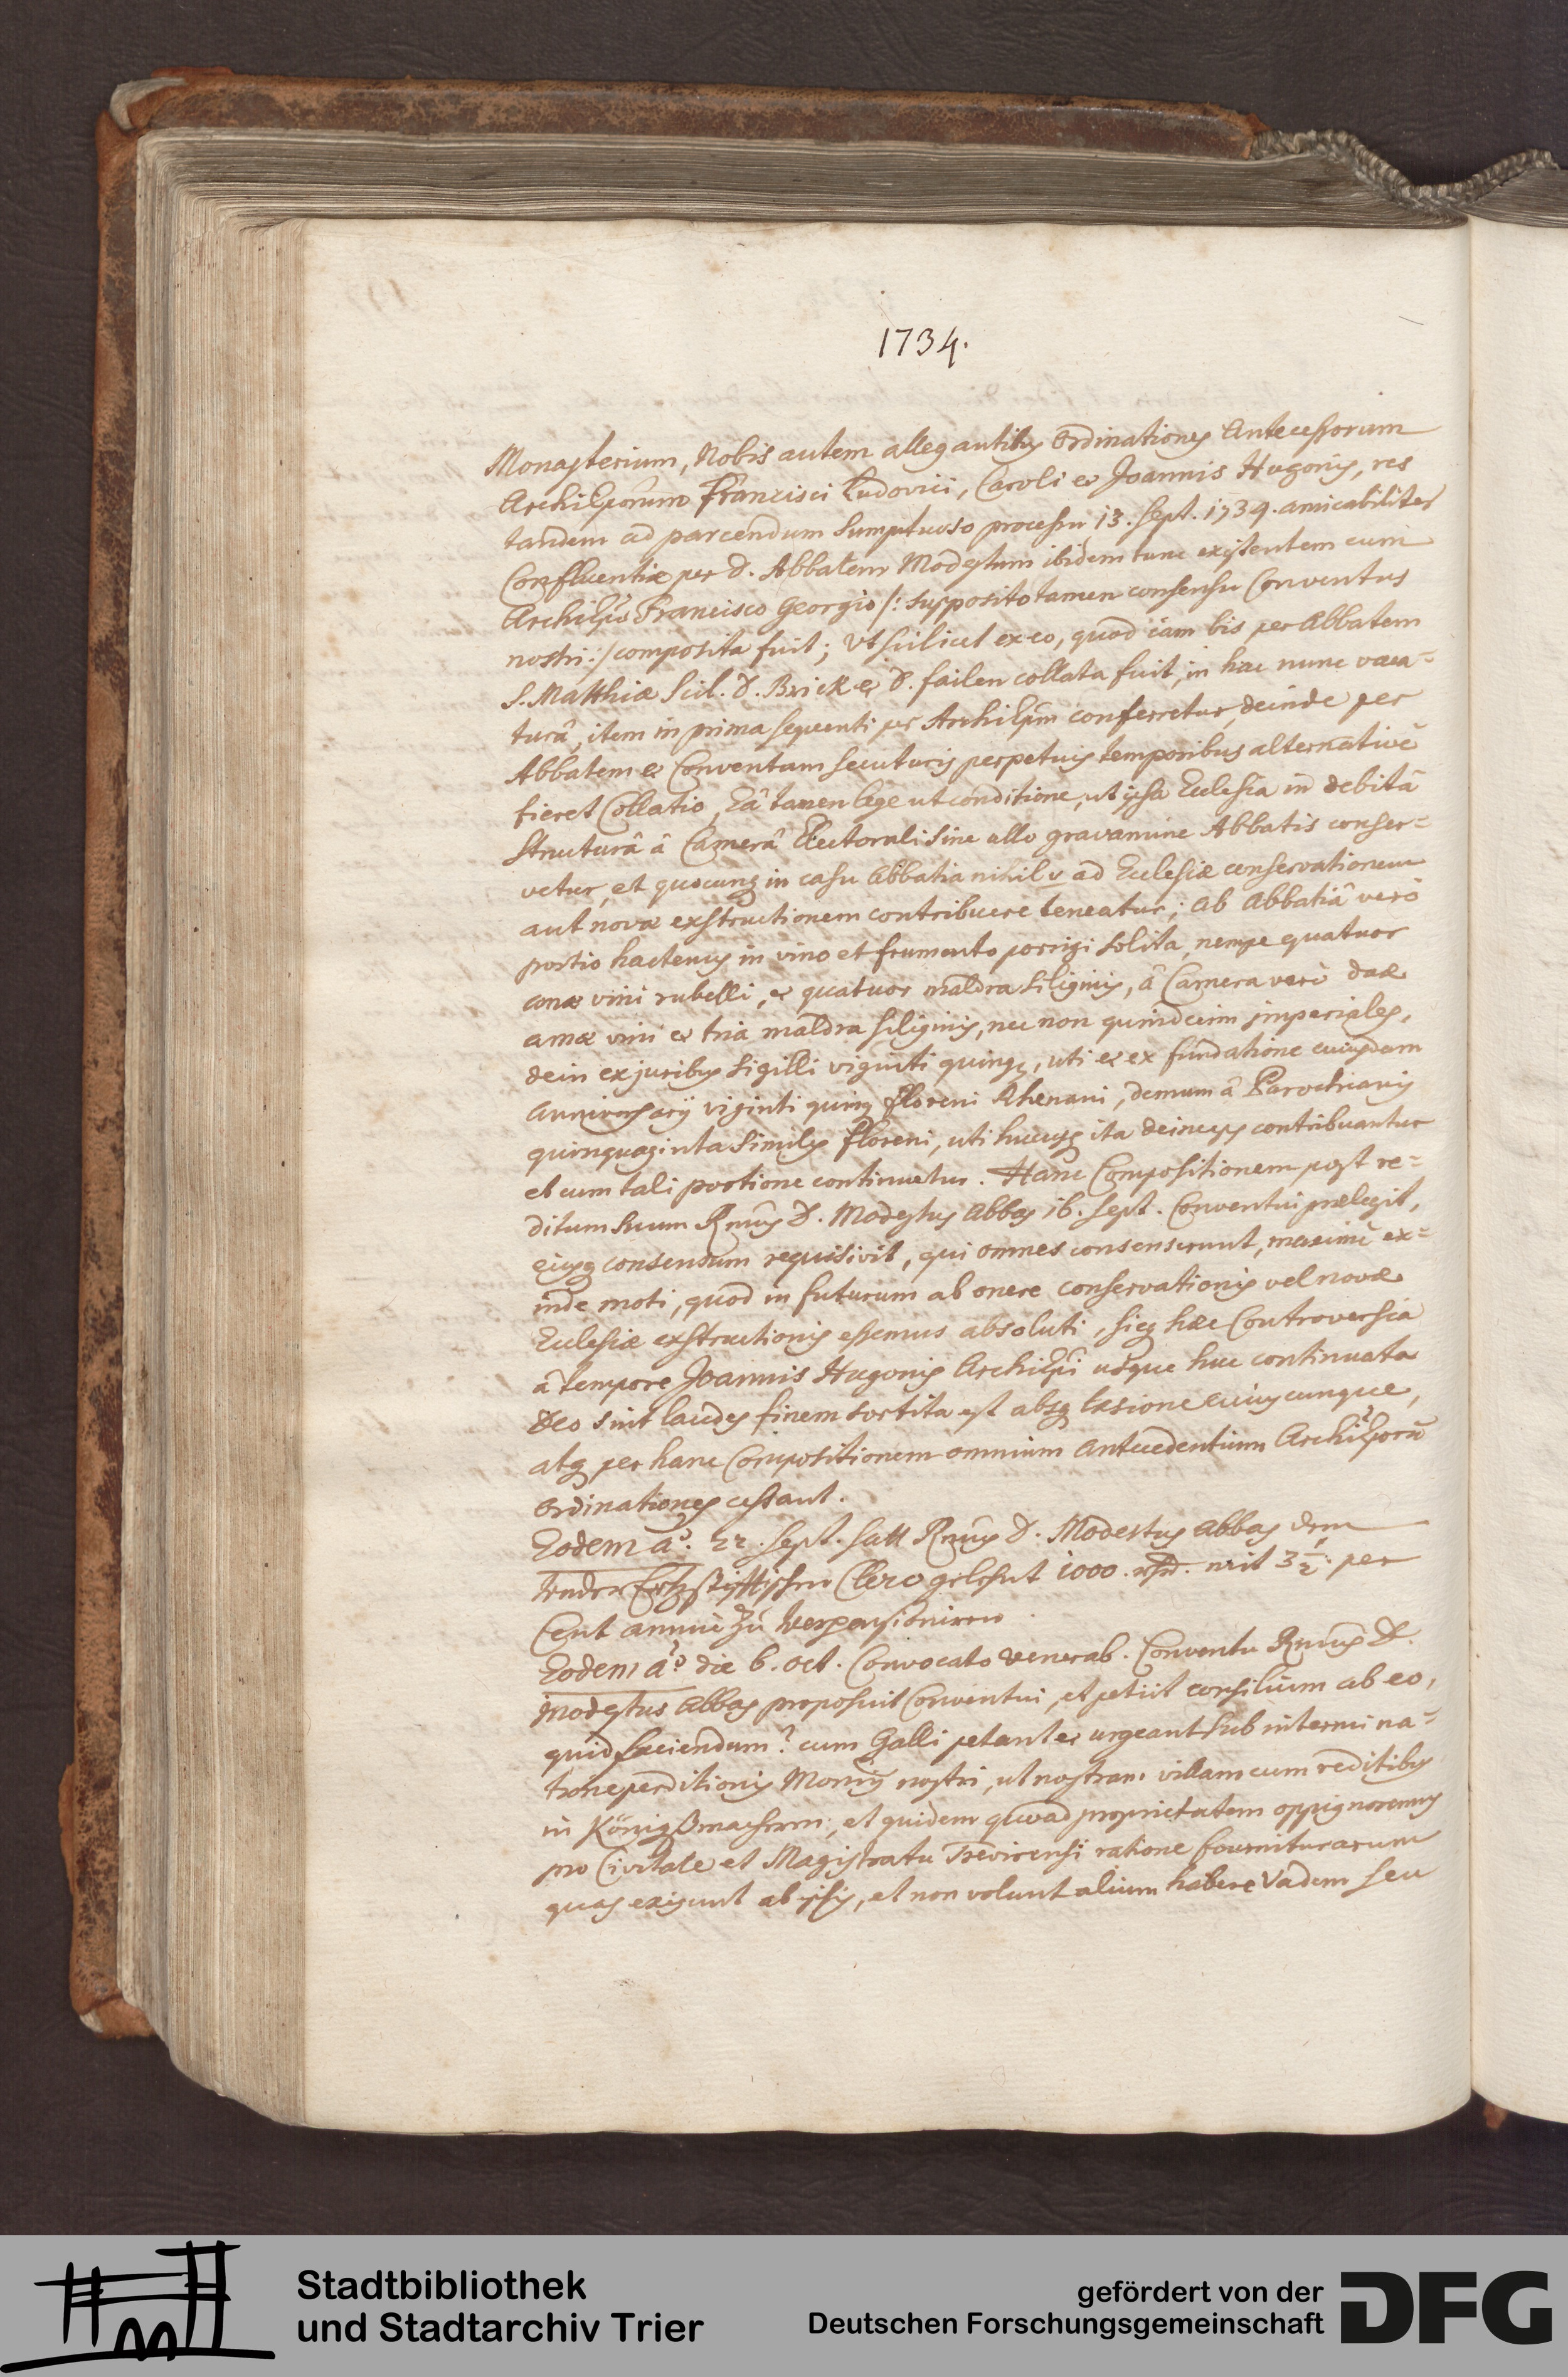 1734.
Monasterium, Nobis autem allegantibus Ordinationes Antecessorum
Archieporum Francisci Ludovici, Caroli et Joannis Hugonis, res
tandem ad parcendum sumptuoso processu 13. Sept. 1734. amicabiliter
Confluentiæ per D. Abbatem Modestum ibidem tunc existentem cum
Archiepo Francisco Georgio /: supposito tamen consensu Conventus
nostri :/ composita fuit; Ut scilicet ex eo, quod iam bis per Abbatem
S. Matthiæ scil. D. Brick et D. failen collata fuit, in hac nunc vaca=
turâ, item in prima sequenti per Archiepm conferretur, deinde per
Abbatem et Conventum secuturis perpetuis temporibus alternativè
fieret Collatio, Eâ tamen lege ut conditione, ut ipsa Ecclesia in debitâ
structurâ â Camerâ Electorali sine ullo gravamine Abbatis conser=
vetur, et quocunq in casu Abbatia nihil ad Ecclesiæ conservationem
aut novæ exstructionem contribuere teneatur; ab Abbatiâ verò
portio hactenus in vino et frumento porrigi solita, nempe quatuor
amæ vini rubelli, et quatuor maldra siliginis, â Camera verò duæ
amæ vini et tria maldra siliginis, nec non quindecim imperiales,
dein ex juribus sigilli viginti quinq, uti et ex fundatione cuiusdam
Anniversarij viginti quinq floreni Rhenani, demum â Parochianis
quinquaginta similes floreni, uti hucusq ita deinceps contribuantur
et cum tali portione continuetur. Hanc Compositionem post re=
ditum suum Rmus D. Modestus Abbas 16. Sept. Conventui prælegit,
eiusq consensum requisivit, qui omnes consenserunt, maximè ex=
inde moti, quod in futurum ab onere conservationis vel novæ
Ecclesiæ exstructionis essemus absoluti, sicq hæc Controversia
â tempore Joannis Hugonis Archiepi usque huc continuata
Deo sint laudes finem sortita est absq læsione cuiuscunque,
atq per hanc Compositionem omnium Antecedentium Archieporũ
Ordinationes cessant.
Eodem aõ. 22. Sept. hatt Rmus D. Modestus Abbas dem
Ertzstifftischen Clero gelehnt 1000. rhd. mit 3 1/2: per
Cent annuè zu verpensioniren
Eodem aõ die 6. Oct. Convocato venerab. Conventu Rmus D.
Modestus Abbas proposuit Conventui, et petiit consilium ab eo,
quid faciendum? cum Galli petant et urgeant sub intermina=
tione perditionis Monrij nostri, ut nostram villam cum reditibus
in Königsmachern, et quidem quoad proprietatem oppignoremus
pro Civitate et Magistratu Trevirensi ratione fourniturarum
quas exigunt ab ipsis, et non volunt alium habere Vadem seu
Stadtbibliothek
und Stadtarchiv Trier
gefördert von der
Deutschen Forschungsgemeinschaft
DFG